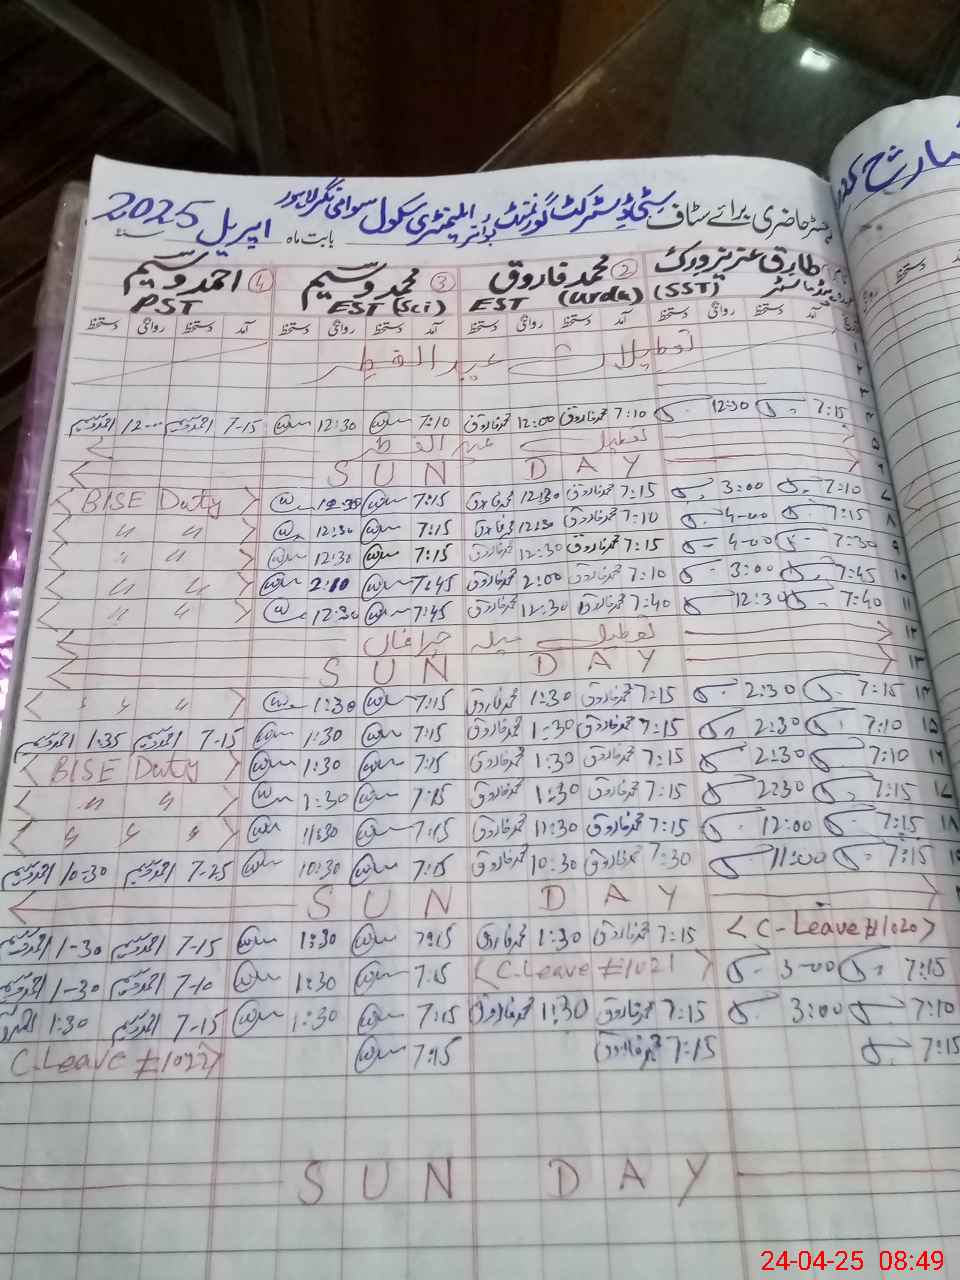 حاضری برائے سٹاف سٹی ڈسٹرکٹ گورنمنٹ بوائز ایلیمنٹری سکول سوامی نگر لاہور بابت ماہ اپریل 2025
مارچ
طارق عزیز ورک ② محمد فاروق ③ محمد وسیم ④ احمد وسیم
ہیڈ ماسٹر (SST) EST (Urdu) EST (Sci) PST
آمد دستخط روانگی دستخط آمد دستخط روانگی دستخط آمد دستخط روانگی دستخط آمد دستخط روانگی دستخط
۱ تعطیلات عید الفطر
۲
۳
۴ 7:15 12:30 7:10 محمد فاروق 12:00 محمد فاروق 7:10 12:30 7-15 احمد وسیم 12-00 احمد وسیم
۵ تعطیل عید الفطر
۶ SUN DAY
۷ 7:10 3:00 7:15 محمد فاروق 12:30 محمد فاروق 7:15 BISE Duty
۸ 7:15 4-00 7:10 محمد فاروق 12:30 محمد فاروق 7:15 12:30 〃 〃
۹ 7:30 4-00 7:15 محمد فاروق 12:30 محمد فاروق 7:15 12:30 〃 〃
۱۰ 7:45 3:00 7:10 محمد فاروق 2:00 محمد فاروق 7:45 2:10 〃 〃
۱۱ 7:40 12:30 7:40 محمد فاروق 12:30 محمد فاروق 7:45 12:30 〃 〃
۱۲ تعطیل میلہ چراغاں
۱۳ SUN DAY
۱۴ 7:15 2:30 7:15 محمد فاروق 1:30 محمد فاروق 7:15 1:30 〃 〃 〃
۱۵ 7:10 2:30 7:15 محمد فاروق 1:30 محمد فاروق 7:15 1:30 7-15 احمد وسیم 1:35 احمد وسیم
۱۶ 7:10 2:30 7:15 محمد فاروق 1:30 محمد فاروق 7:15 1:30 BISE Duty
۱۷ 7:15 2:30 7:15 محمد فاروق 1:30 محمد فاروق 7:15 1:30 〃 〃
۱۸ 7:15 12:00 7:15 محمد فاروق 11:30 محمد فاروق 7:15 11:30 〃 〃 〃
7:15 11:00 7:30 محمد فاروق 10:30 محمد فاروق 7:15 10:30 7-25 احمد وسیم 10-30 احمد وسیم
SUN DAY
<C-Leave #1020> 7:15 محمد فاروق 1:30 محمد فاروق 7:15 1:30 7-15 احمد وسیم 1-30 احمد وسیم
7:15 3-00 <C-Leave #1021> 7:15 1:30 7-10 احمد وسیم 1-30 احمد وسیم
7:10 3:00 7:15 محمد فاروق 1:30 محمد فاروق 7:15 1:30 7-15 احمد وسیم 1:30
7:15 7:15 محمد فاروق 7:15 C-Leave #1022>
SUN DAY
24-04-25 08:49